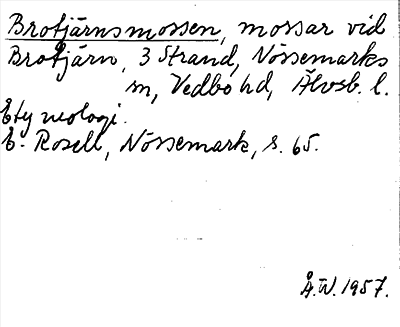 Brotjärnsmossen, mossar vid
Brotjärn, 3 Strand, Nössemarks
sn, Vedbo hd, Älvsb. l.
Etymologi.
E. Rosell, Nössemark, s. 65.
Å.W. 1957.